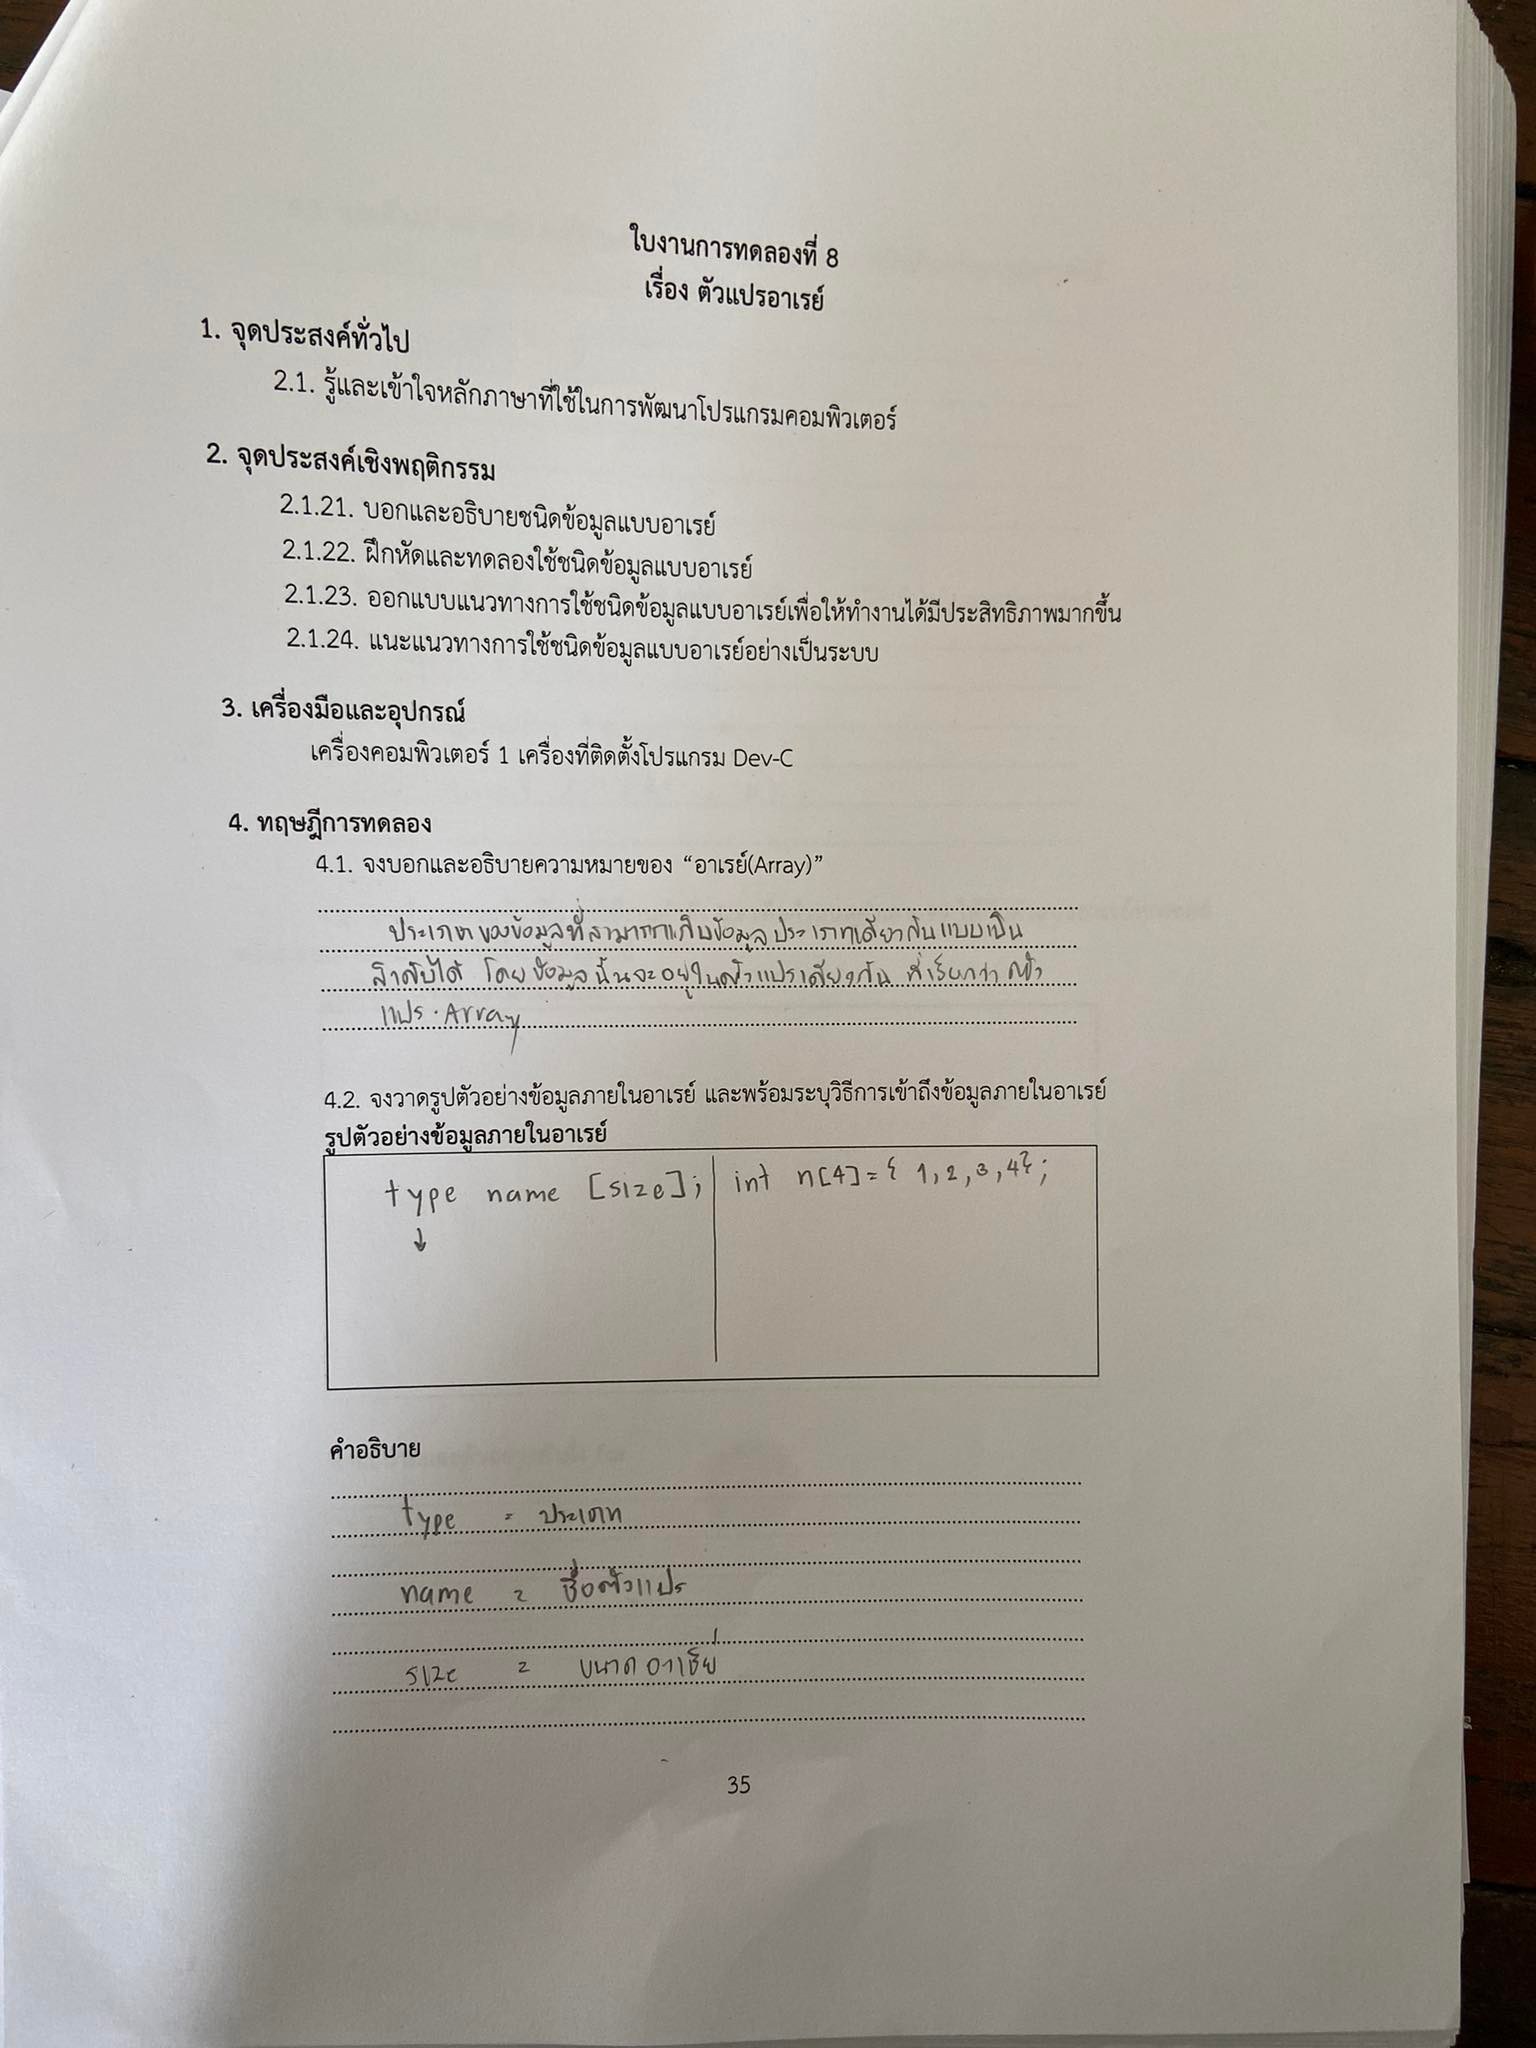 ใบงานการทดลองที่ 8
เรื่อง ตัวแปรอาเรย์
1. จุดประสงค์ทั่วไป
2.1. รู้และเข้าใจหลักภาษาที่ใช้ในการพัฒนาโปรแกรมคอมพิวเตอร์
2. จุดประสงค์เชิงพฤติกรรม
2.1.21. บอกและอธิบายชนิดข้อมูลแบบอาเรย์
2.1.22. ฝึกหัดและทดลองใช้ชนิดข้อมูลแบบอาเรย์
2.1.23. ออกแบบแนวทางการใช้ชนิดข้อมูลแบบอาเรย์เพื่อให้ทำงานได้มีประสิทธิภาพมากขึ้น
2.1.24. แนะแนวทางการใช้ชนิดข้อมูลแบบอาเรย์อย่างเป็นระบบ
3. เครื่องมือและอุปกรณ์
เครื่องคอมพิวเตอร์ 1 เครื่องที่ติดตั้งโปรแกรม Dev-C
4. ทฤษฎีการทดลอง
4.1. จงบอกและอธิบายความหมายของ “อาเรย์(Array)”
ประเภทของข้อมูลที่สามารถเก็บข้อมูลประเภทเดียวกันแบบเป็น
ลำดับได้ โดยข้อมูลนั้นจะอยู่ในตัวแปรเดียวกัน ที่เรียกว่า ตัว
แปร Array
4.2. จงวาดรูปตัวอย่างข้อมูลภายในอาเรย์ และพร้อมระบุวิธีการเข้าถึงข้อมูลภายในอาเรย์
รูปตัวอย่างข้อมูลภายในอาเรย์
type name [size]; int n[4]={ 1,2,3,4};
↓
คำอธิบาย
type = ประเภท
name = ชื่อตัวแปร
size = ขนาดอาเรย์
35